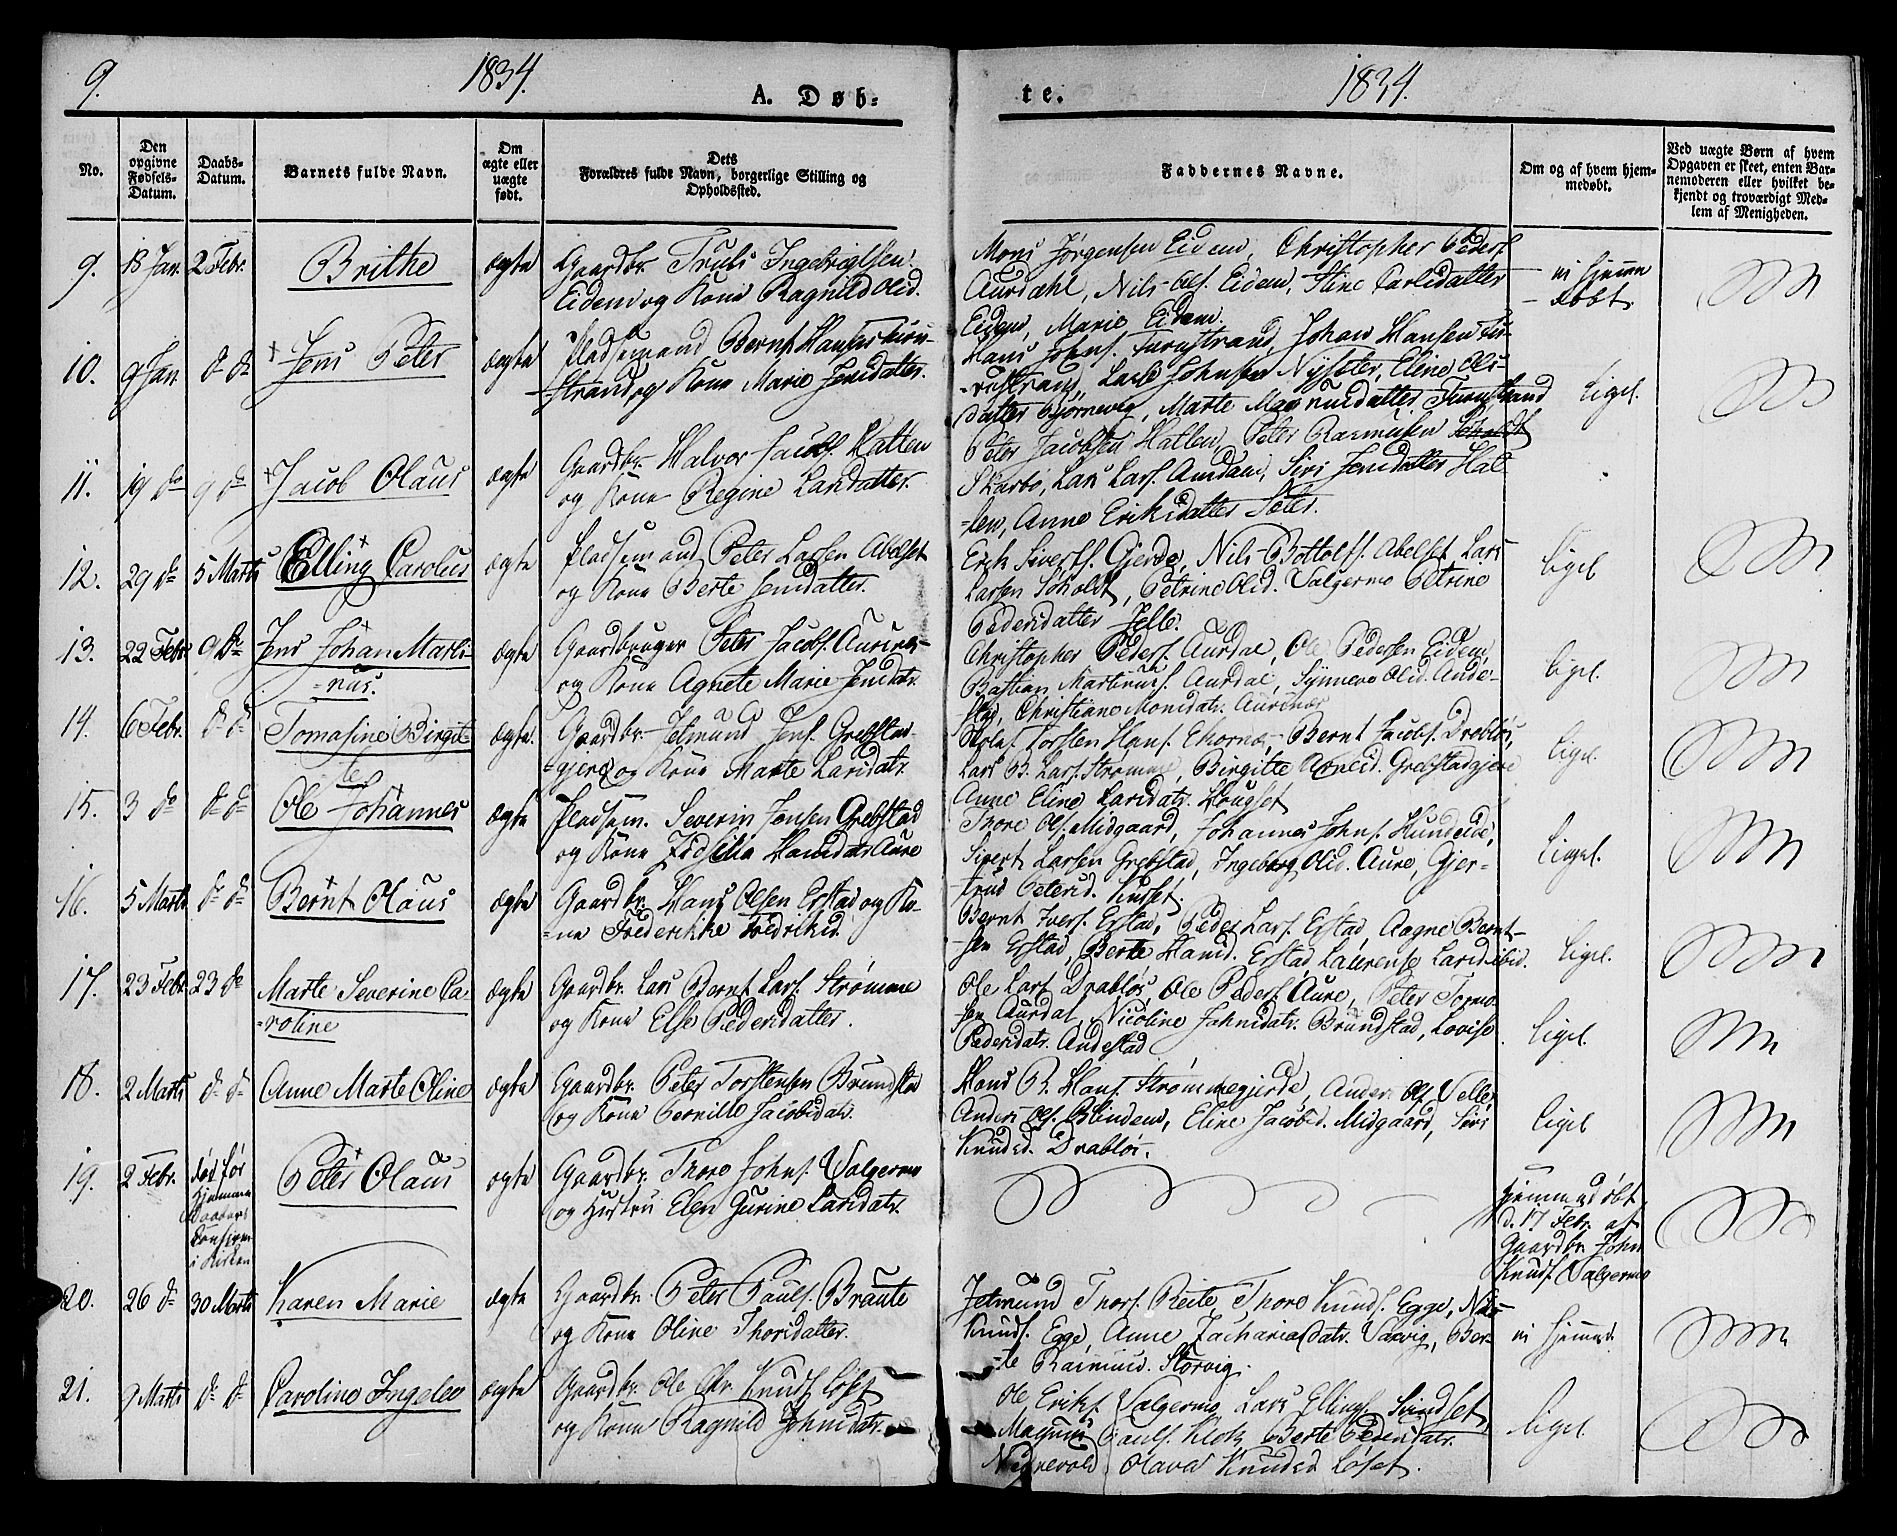 9. 1834. A. Døb-
te. 1834.
No.
Den opgivne Fødsels-Datum.
Daabs-Datum.
Barnets fulde Navn.
Om ægte eller uægte født.
Dets Forældres fulde Navn, borgerlige Stilling og Opholdssted.
Faddernes Navne.
Om og af hvem hjem-
medøbt.
Ved uægte Børn af hvem
Opgaven er skeet, enten Bar-
nemoderen eller hvilket be-
kjendt og troværdigt Med-
lem af Menigheden.
9. 18 Jan. 2 Febr. Brithe ægte Gaardbr. Truls Ingebrigtsen
Eidem og Kone Ragnild Olsd.
Mons Jørgensen Eidem, Christopher Peders.
Aurdahl, Nils Ols. Eidem, Stine Carlsdatter
Eidem, Marie Eidem.
ei hjemme
døbt.
10. 9 Jan. d. d. Jens Peter ægte Pladsemand Bernt Hansen
strand og Kone Marie Jensdatter.
Hans Johns. Furustrand, Johan Hansen
Lars Johnsen Nysæter, Eline Ols-
datter Bjørnevig, Marte Magnusdatter Furustrand
ligel.
11. 19 do 9 do Jacob Olaus ægte Gaardbr. Halvor Jacobs. Hatlen
og Kone Regine Larsdatter.
Peter Jacobsen Hatlen, Peter Rasmusen
Skarbø, Lars Lars. Amdam, Siri Jensdatter Hat-
len, Anne Eriksdatter Sæter.
12. 29 do 5 Marts Elling Carolus ægte Pladsemand Peter Larsen Abelset
og Kone Berte Jensdatter.
Erik Siverts. Gjerde, Nils Bottolfs. Abelset Lars
Larsen Søholdt, Petrine Olsd. Valgermo Petrine
Pedersdatter Felle.
ligel
13. 22 Febr. 9 do Jens Johan Marti-
nus. ægte Gaardbruger Peter Jacobs. Aurenes
og Kone Agnete Marie Jensdatr.
Christopher Peders. Aurdal, Ole Pedersen Eidem,
Bastian Martinus. Aurdal, Synneve Olsd. Ande-
stad, Christiane Monsdatr. Aurenæs
ligel.
14. 6 Febr. d. d. Tomasine Birgit-
te ægte. Gaardbr. Jetmund Jens. Grebstad-
gjere og Kone Marte Larsdatr.
Torsten Hans. Ekornæs, Bernt Jacobs. Drabløs,
Lars B. Lars. Strømme, Birgitte Grebstadgjere
Anne Eline Larsdatr. Hougset
ligel.
15. 3 do d. d. Ole Johannes ægte Pladsem. Severin Jensen Grebstad
og Kone Zidsilia Hansdatr Aure
Thore Ols. Midgaard, Johannes Johns. Hundeide,
Sivert Larsen Grebstad, Ingeborg Olsd. Aure, Gjer-
trud Petersd.
ligel.
16. 5 Marts d. d. Bernt Olaus ægte Gaardbr. Hans Olsen Erstad og Ko-
ne Frederikke Fredriksd.
Bernt Ivers. Erstad, Peder Lars. Erstad Aagne Bernt-
sen Erstad, Berte Hansd. Erstad Laurense Larsd. ibid.
ligel.
17. 23 Febr. 23 do Marte Severine Ca-
roline ægte Gaardbr. Lars Bernt Lars. Strømme
og Kone Else Pedersdatter.
Ole Lars. Drabløs, Ole Peders. Aure, Peter Tormo-
sen Aurdal, Nicoline Johnsdatr. Brundstad, Lovise
Pedersdatr. Andestad
ligel.
18. 2 Marts d. d. Anne Marte Oline ægte Gaardbr. Peter Torstensen Brundstad
og Kone Pernille Jacobsdatr.
Hans B. Hans. Strømmegjerde, Anders Ols. Velle,
Anders Ols. Blindem, Eline Jacobsd. Midgaard, Siri
Knudsd. Drabløs.
ligel
19. 2 Febr. død før
hjemme
Daabens
i Kirken
Peter Olaus ægte Gaardbr. Thore Johns. Valgermo
og Hustru Elen Gurine Larsdatr.
hjemmedøbt
d. 17 Febr. af
Gaardbr. John
Knuds. Valgermo
20. 26 d. 30 Marts Karen Marie ægte Gaardbr. Peter Pauls. Braute
og Kone Oline Thorsdatter.
Jetmund Thors. Reite, Thore Knuds. Egge, Nils
Knuds. Egge, Anne Zachariasdatr. Vasvig, Ber-
te Rasmusd. Storvig.
ei hjemmed.
21. 9 Marts d. d. Caroline Ingelev ægte Gaardbr. Ole Chr. Knuds. Løset
og Kone Ragnild Johnsdatr.
Ole Eriks. Valgermo Lars Ellings. Svindset,
Magnus Pauls. Klok, Berte Pedersdatr.
Nedrevold, Olava Knudsd. Løset.
ligel.